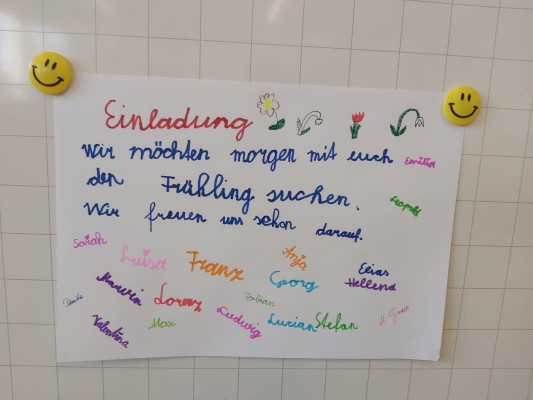 Einladung
Wir möchten morgen mit euch
den Frühling suchen.
Wir freuen uns schon darauf.
Emilia
Leopold
Sarah
Luisa
Franz
Anja
Georg
Elias
Hellena
Marvin
Lorenz
Fabian
Valentina
Max
Ludwig
Lucian
Stefan